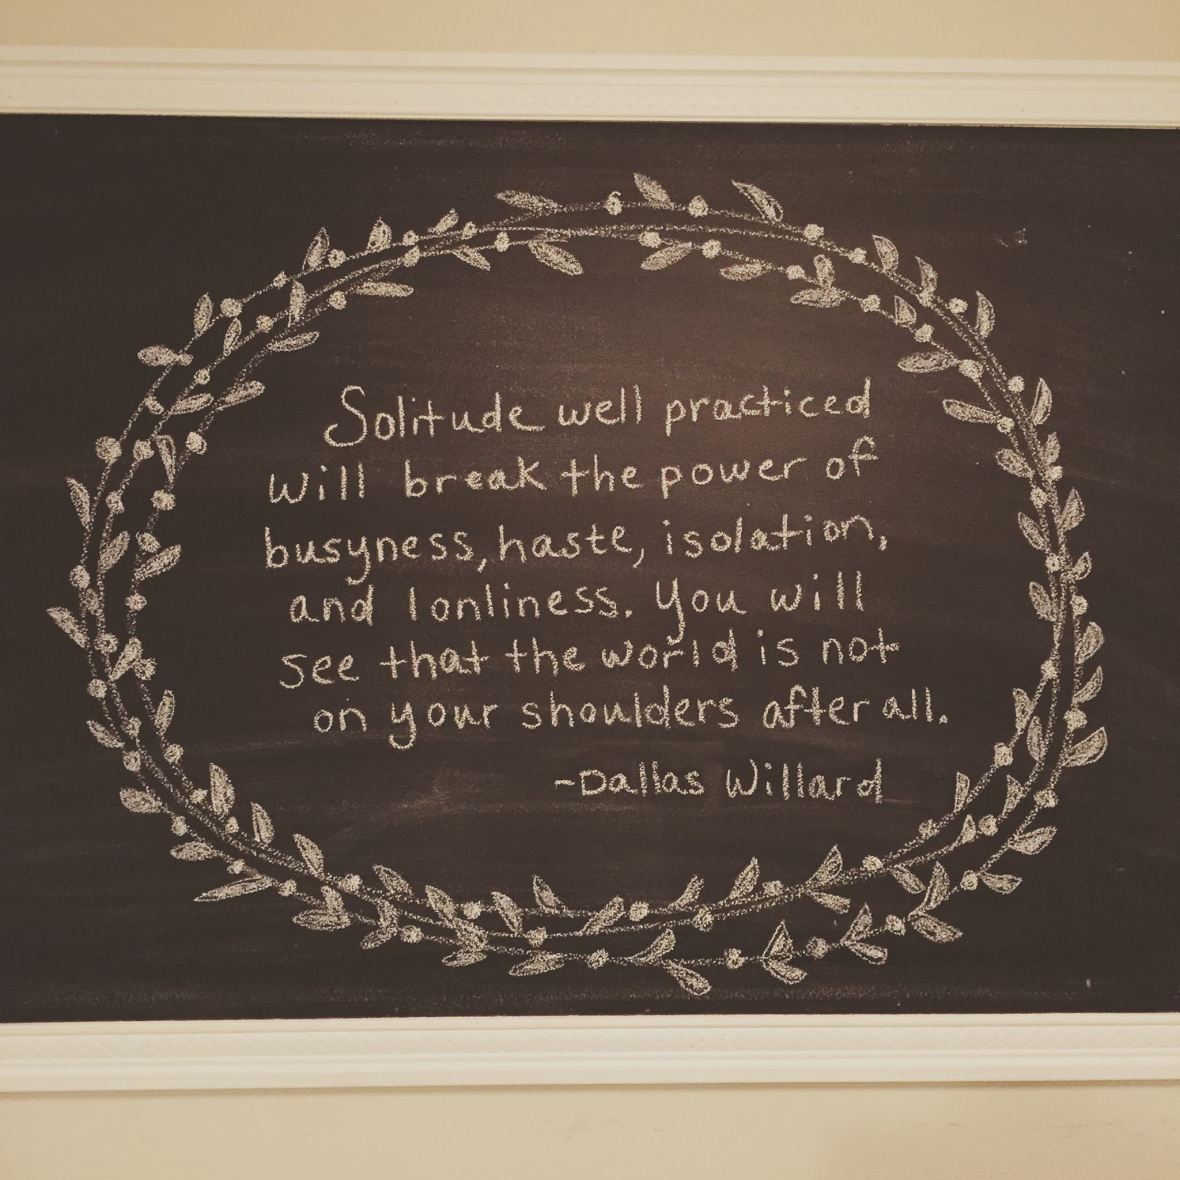 Solitude well practiced
will break the power of
busyness, haste, isolation,
and lonliness. You will
see that the world is not
on your shoulders after all.
-Dallas Willard